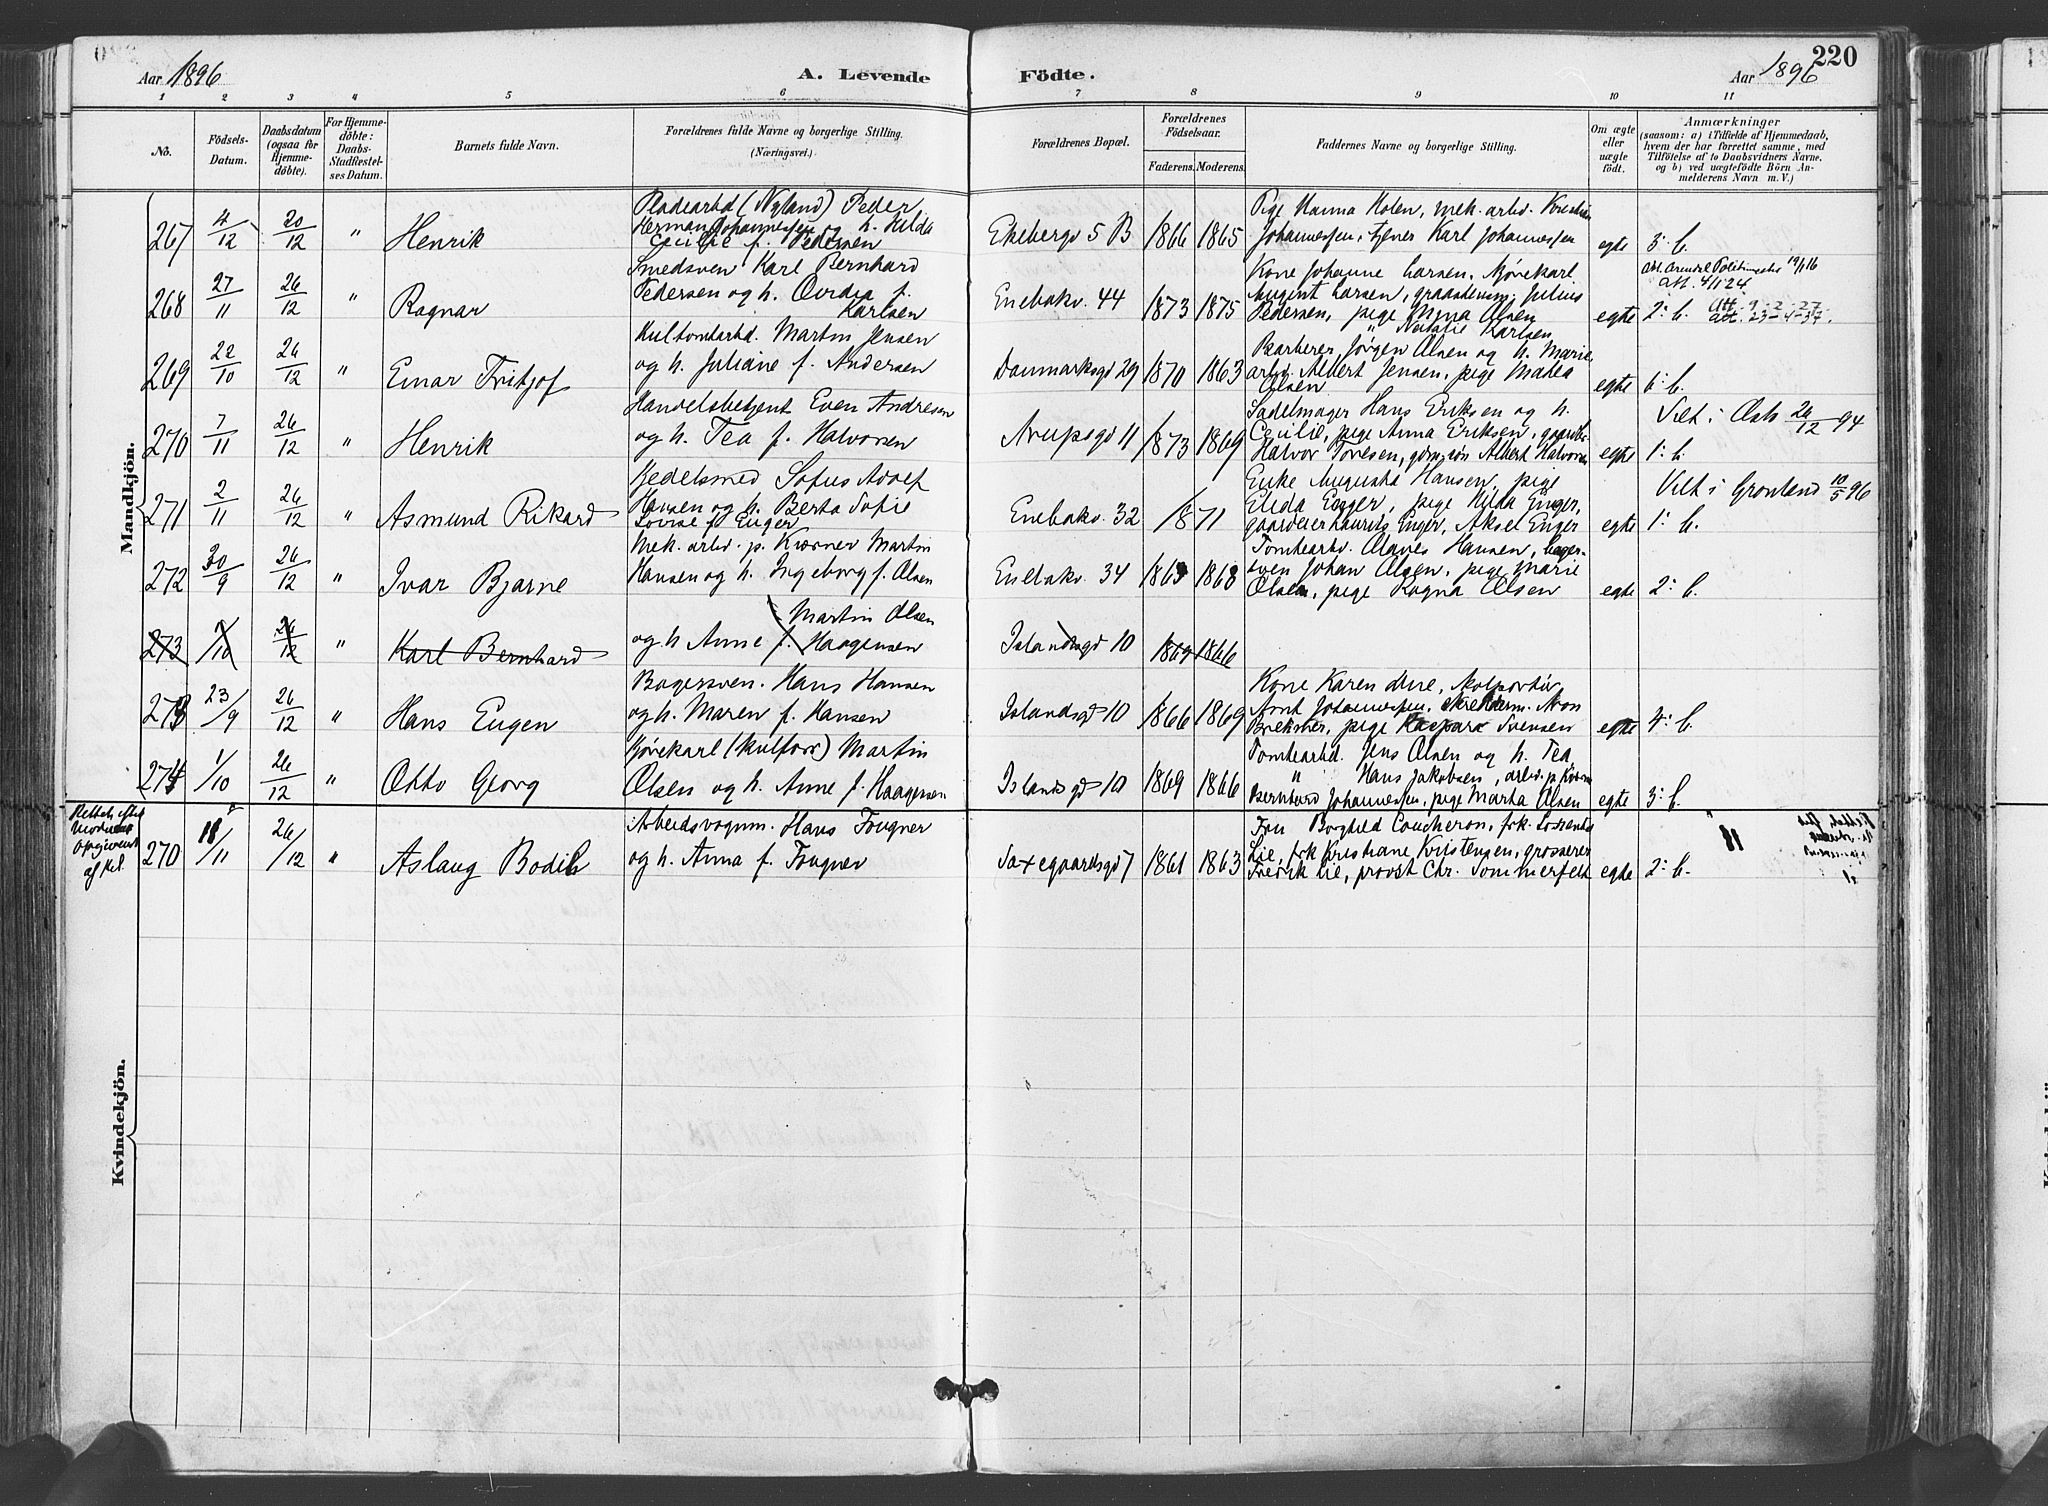 Aar 1896
A. Levende
Födte.
Aar 1896
220
1 2 3 4 5 6 7 8 9 10 11
No.
Födsels-Datum.
Daabsdatum (ogsaa for Hjemme-döbte).
For Hjemme-döbte: Daabs-Stadfæstel-ses Datum.
Barnets fulde Navn.
Forældrenes fulde Navne og borgerlige Stilling.
(Næringsvei.)
Forældrenes Bopæl.
Forældrenes Födselsaar.
Faderens. Moderens.
Faddernes Navne og borgerlige Stilling.
Om ægte eller uægte födt.
Anmærkninger
(saasom: a) i Tilfælde af Hjemmedaab,
hvem der har forrettet samme, med
Tilföielse af to Daabsvidners Navne,
og b) ved uægtefödte Börn An-
melderens Navn m. V.)
Mandkjön.
267 4/12 20/12 " Henrik
Pladearbd (Nyland) Peder
Herman Johannessen og h. Hilda
Cecilie f. Pedersen
Ekebergv 5 B 1866 1865
Pige Hanna Holen, mek. arbd. Kristian
Johannessen, tjener Karl Johannessen
egte 3. b.
268 27/11 26/12 " Ragnar
Smedsven Karl Bernhard
Pedersen og h. Ovidia f.
Karlsen
Enebakv. 44 1873 1875
Kone Johanne Larsen, kjörekarl
August Larsen, Julius
Pedersen, pige Mina Olsen
" Natalie Karlsen
egte 2. b.
att. Arendal Politimester 19/1 16
att. 4/1 24
att. 9-2-27
att. 23-4-37.
269 22/10 26/12 " Einar Fritjof
Kultomtarbd. Martin Jensen
og h. Juliane f. Andersen
Danmarksgd 29 1870 1863
Barberer Jörgen Olsen og h. Marie,
arbd. Albert Jensen, pige Matea
Olsen
egte 6. b.
270 7/11 26/12 " Henrik
Handelsbetjent Even Andresen
og h. Tea f. Halvorsen
Arupsgd 11 1873 1869
Sadelmager Hans Eriksen og h.
Cecilie, pige Anna Eriksen, gaardbr.
Halvor Toresen, gdmsön Albert Halvorsen
egte 1. b.
Viet i Oslo 26/12 94
271 2/11 26/12 " Asmund Rikard
Gjedelsmed Sofus Adolf
Hansen og h. Berta Sofie
Lovise f. Enger
Enebakv. 32 1871
Enke Augusta Hansen, pige
Elida Enger, pige Hilda Enger,
gaardeier Laurits Enger, Aksel Enger
egte 1. b.
Viet i Grönland 10/5 96
272 30/9 26/12 " Ivar Bjarne
Mek. arbd. p. Kværner Martin
Hansen og h. Ingeborg f. Olsen
Enebakv. 34 1868
Tomtearbd. Olaves Hansen, bager-
sven Johan Olsen, pige Marie
Olsen, pige Ragna Olsen
egte 2. b.
273 1/10 26/12 " Karl Bernhard
Martin Olsen
og h. Anne f. Haagensen
Islandsgd 10 1869 1866
273 23/9 26/12 " Hans Eugen
Bagersven. Hans Hansen
og h. Maren f. Hansen
Islandsgd 10 1866 1869
Kone Karen Mne, kolportör
Arnt Johannessen, skrædderm. Aron
Brekmer, pige Kaspara Svensen
egte 4. b.
274 1/10 26/12 " Otto Georg
Kjörekarl (kulforr.) Martin
Olsen og h. Anne f. Haagensen
Islandsgd 10 1869 1866
Tomtearbd. Jens Olsen og h. Tea,
" Hans Jakobsen, arbd. p. Kværn.
Bernhard Johannessen, pige Marta Olsen
egte 3. b.
Kvindekjön.
Rettet efter
Moderens
opgivende
af Kl.
270 18/11 26/12 " Aslaug Bodil
Arbeidsvognm. Hans Fougner
og h. Anna f. Fougner
Saxegaardsgd 7 1861 1863
Fru Borghild Coucheron, frk. Lorentze
Lie, frk Kristiane Kristensen, grosserer
Fredrik Lie, provst Chr. Sommerfelt
egte 2. b.